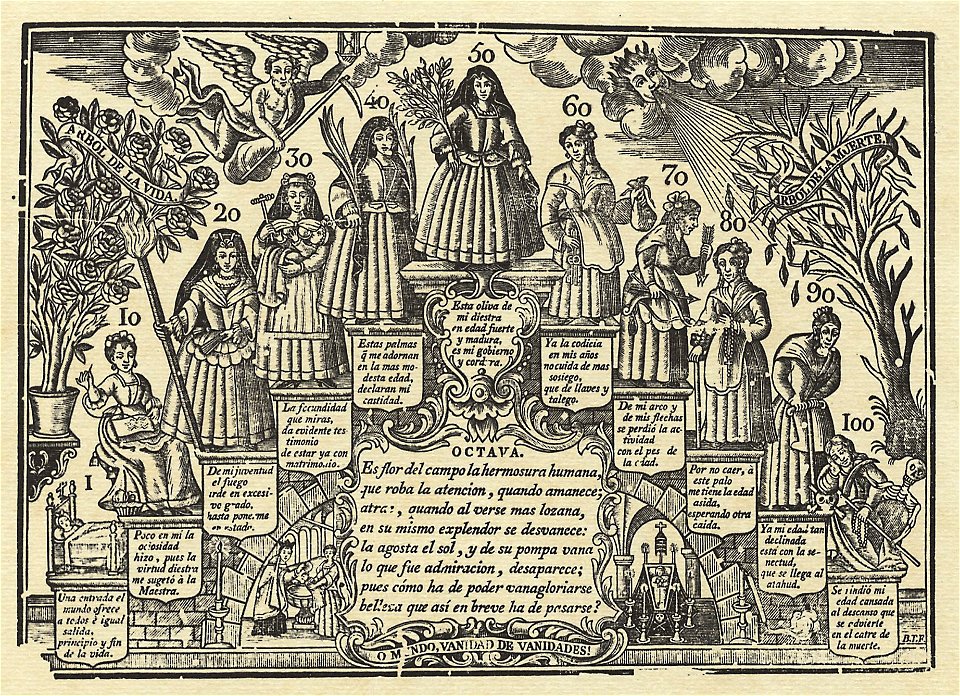 ARBOL DE LA VIDA.
ARBOL DE LA MUERTE.
1
10
20
30
40
50
60
70
80
90
100
Una entrada el
mundo ofrece
a todos é igual
salida,
principio y fin
de la vida.
Poco en mi la
ociosidad
hizo, pues la
virtud diestra
me sugetó à la
Maestra.
De mi juventud
el fuego
arde en excesi-
vo grado,
hasta ponerme
en estado.
La fecundidad
que miras,
da evidente tes-
timonio
de estar ya con
matrimonio.
Estas palmas
q̃ me adornan
en la mas mo-
desta edad,
declaran mi
castidad.
Esta oliva de
mi diestra
en edad fuerte
y madura,
es mi gobierno
y cordura.
Ya la codicia
en mis años
no cuida de mas
sosiego,
que de llaves y
talego.
De mi arco y
de mis flechas
se perdió la ac-
tividad
con el pes de
la edad.
Por no caer, à
este palo
me tiene la edad
asida,
esperando otra
caida.
Ya mi edad tan
declinada
está con la se-
nectud,
que se llega al
atahud.
Se rindió mi
edad cansada
al descanso que
se advierte
en el catre de
la muerte.
OCTAVA.
Es flor del campo la hermosura humana,
que roba la atencion, quando amanece;
atrae, quando al verse mas lozana,
en su mismo explendor se desvanece:
la agosta el sol, y de su pompa vana
lo que fue admiracion, desaparece;
pues cómo ha de poder vanagloriarse
belleza que así en breve ha de pasarse?
O MUNDO, VANIDAD DE VANIDADES!
B.T.F.